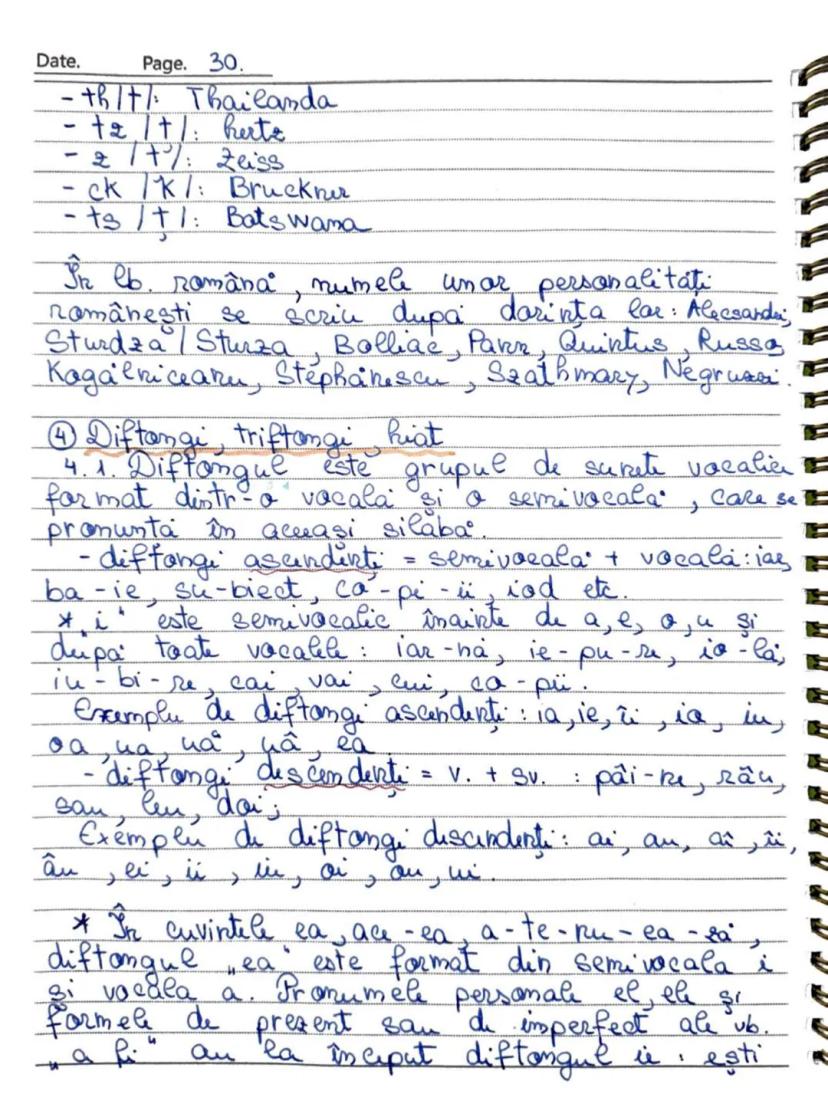 Date. Page. 30.
- th /t/: Thailanda
- tz /ț/: hertz
- z /ț/: Zeiss
- ck /k/: Bruckner
- ts /ț/: Batswana
În lb. română, numele unor personalități
românești se scriu după dorința lor: Alecsandri,
Sturdza / Sturza, Bolliac, Pann, Quintus, Russo,
Kogălniceanu, Stephănescu, Szathmary, Negruzzi.
④ Diftongi, triftongi, hiat
4.1. Diftongul este grupul de sunete vocalice
format dintr-o vocală și o semivocală, care se
pronunță în aceeași silabă.
- diftongi ascendenți = semivocală + vocală: iar,
ba-ie, su-biect, co-pi-ii, iod etc.
* „i" este semivocalic înainte de a, e, o, u și
după toate vocalele: iar-nă, ie-pu-re, io-lă,
iu-bi-re, cai, vai, cui, co-pii.
Exemple de diftongi ascendenți: ia, ie, îi, io, iu,
oa, ua, uă, uâ, ea
- diftongi descendenți = v. + sv. : pâi-ne, râu,
sau, leu, doi;
Exemple de diftongi descendenți: ai, au, ăi, îi,
âu, ei, ii, iu, oi, ou, ui.
* În cuvintele ea, ace-ea, a-te-nu-ea-ză,
diftongul „ea" este format din semivocala i
și vocala a. Pronumele personale el, ele și
formele de prezent sau de imperfect ale vb.
„a fi" au la început diftongul ie : ești